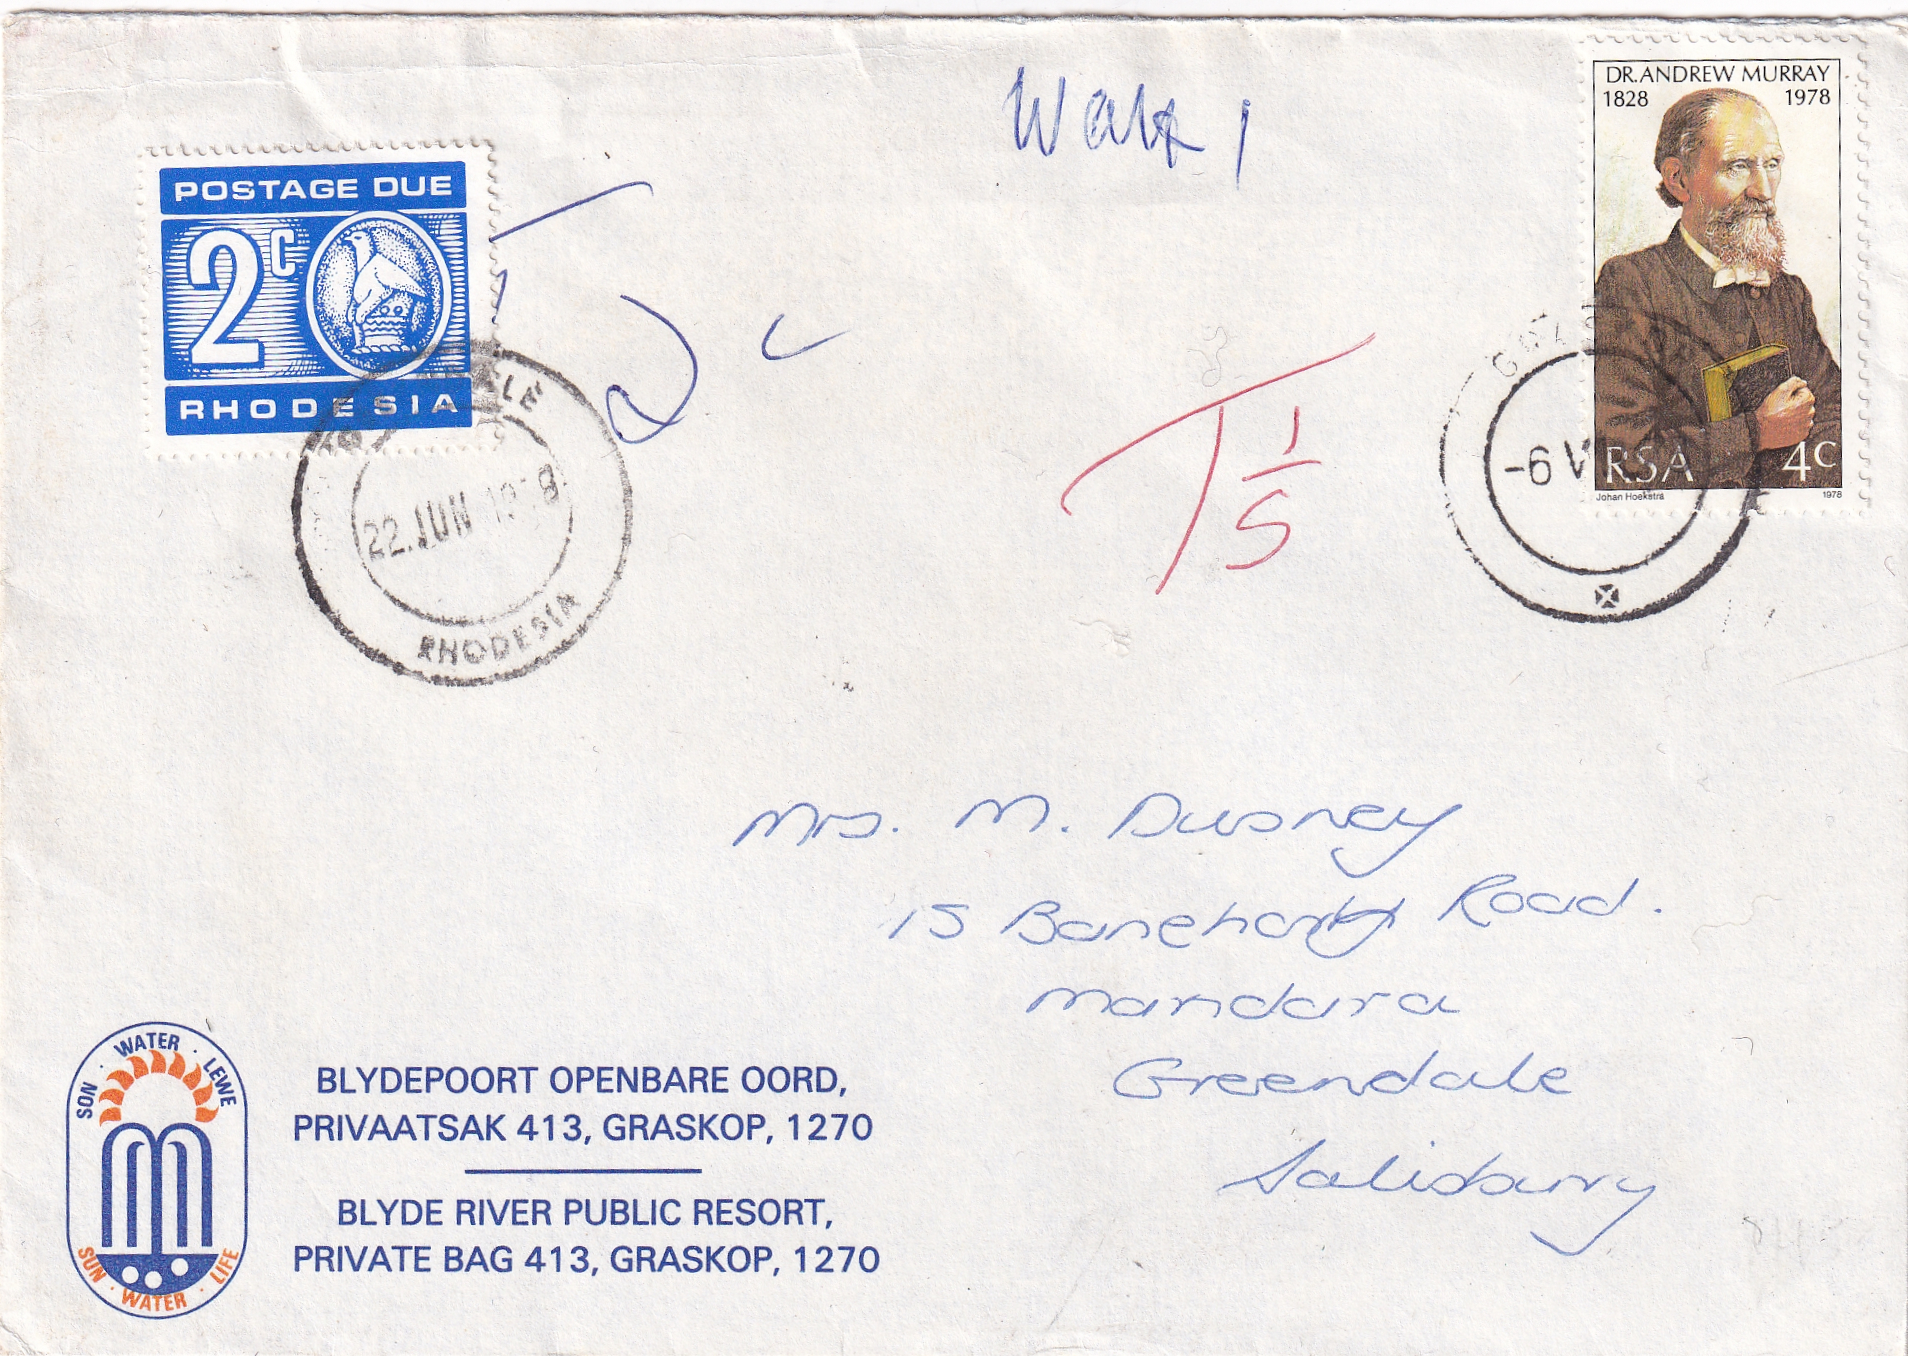 Walk 1
DR. ANDREW MURRAY
1828 1978
RSA 4c
Johan Hoekstra 1978
POSTAGE DUE
2c
RHODESIA
2c
T 1/5
-6 V
22. JUN 1978
RHODESIA
Mrs. M. Dusney
15 Road.
Mandara
Greendale
Salisbury
SON · WATER · LEWE
SUN · WATER · LIFE
BLYDEPOORT OPENBARE OORD,
PRIVAATSAK 413, GRASKOP, 1270
BLYDE RIVER PUBLIC RESORT,
PRIVATE BAG 413, GRASKOP, 1270